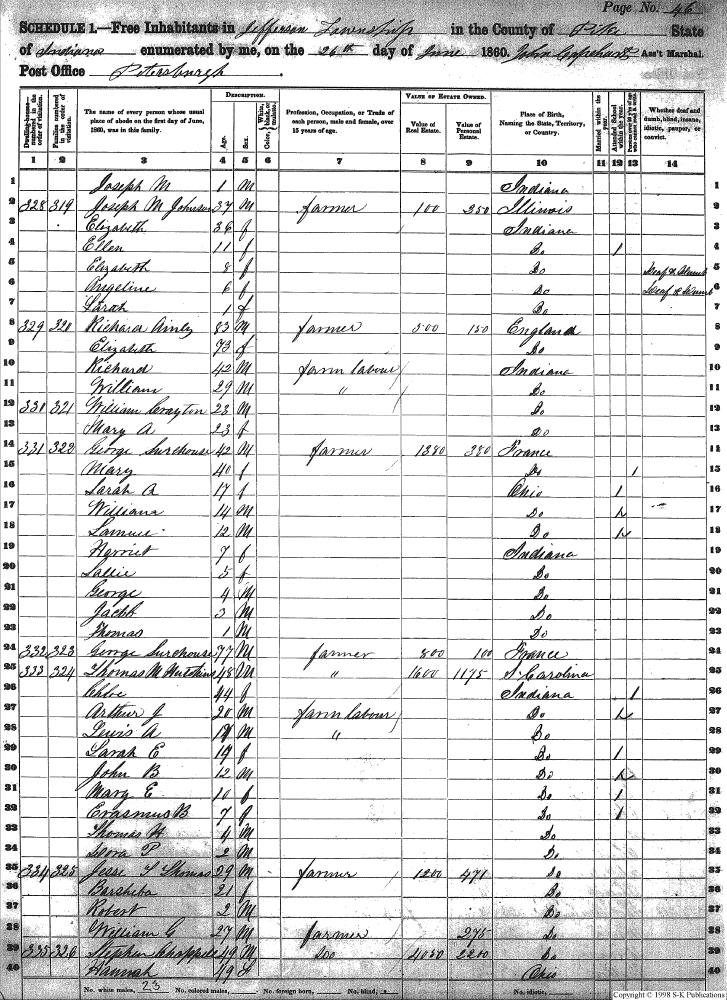 Page No. 46
SCHEDULE 1.—Free Inhabitants in Jefferson Township in the County of Pike State
of Indiana enumerated by me, on the 26th day of June 1860. John Capehart Ass't Marshal.
Post Office Petersburgh.
Dwelling-houses—numbered in the order of visitation. Families numbered in the order of visitation. The name of every person whose usual place of abode on the first day of June, 1860, was in this family. DESCRIPTION. Age. Sex. Color, White, black, or mulatto. Profession, Occupation, or Trade of each person, male and female, over 15 years of age. VALUE OF ESTATE OWNED. Value of Real Estate. Value of Personal Estate. Place of Birth, Naming the State, Territory, or Country. Married within the year. Attended School within the year. Whether deaf and dumb, blind, insane, idiotic, pauper, or convict.
1 2 3 4 5 6 7 8 9 10 11 12 13 14
1 Joseph M 1 M Indiana 1
2 328 319 Joseph M Johnson 37 M farmer 100 250 Illinois 2
3 Elizabeth 36 f Indiana 3
4 Ellen 11 f Do 1 4
5 Elizabeth 8 f Do Deaf & Dumb 5
6 Angeline 6 f Do Deaf & Dumb 6
7 Sarah 1 f Do 7
8 329 320 Richard Ainley 83 M farmer 500 150 England 8
9 Elizabeth 73 f Do 9
10 Richard 42 M farm labour Indiana 10
11 William 29 M " Do 11
12 330 321 William Crayton 23 M Do 12
13 Mary A 23 f Do 13
14 331 322 George Surehouse 42 M farmer 1380 380 France 14
15 Mary 40 f Do 1 15
16 Sarah A 17 f Ohio 1 16
17 William 14 M Do 1 17
18 Samuel 12 M Do 1 18
19 Harriet 7 f Indiana 19
20 Sallie 5 f Do 20
21 George 4 M Do 21
22 Jacob 3 M Do 22
23 Thomas 1 M Do 23
24 332 323 George Surehouse 77 M farmer 800 100 France 24
25 333 324 Thomas M Hutchins 48 M " 1600 1175 S. Carolina 25
26 Chloe 44 f Indiana 1 26
27 Arthur J 20 M farm labour Do 1 27
28 Lewis A M " Do 28
29 Sarah E f Do 1 29
30 John B 12 M Do 1 30
31 Mary E 10 f Do 1 31
32 Erasmus B 7 Do 1 32
33 Thomas H 4 M Do 33
34 P 2 M Do 34
35 334 325 Jesse Thomas 29 M farmer 1200 471 Do 35
36 Barsheba 21 f Do 36
37 Robert 2 M Do 37
38 William G 27 M farmer 275 Do 38
39 335 326 Stephen Chappell 49 M Do 2200 Do 39
40 Hannah 49 f Ohio 40
No. white males, 23 No. colored males, No. foreign born, No. blind, No. idiotic,
Copyright © 1998 S-K Publications